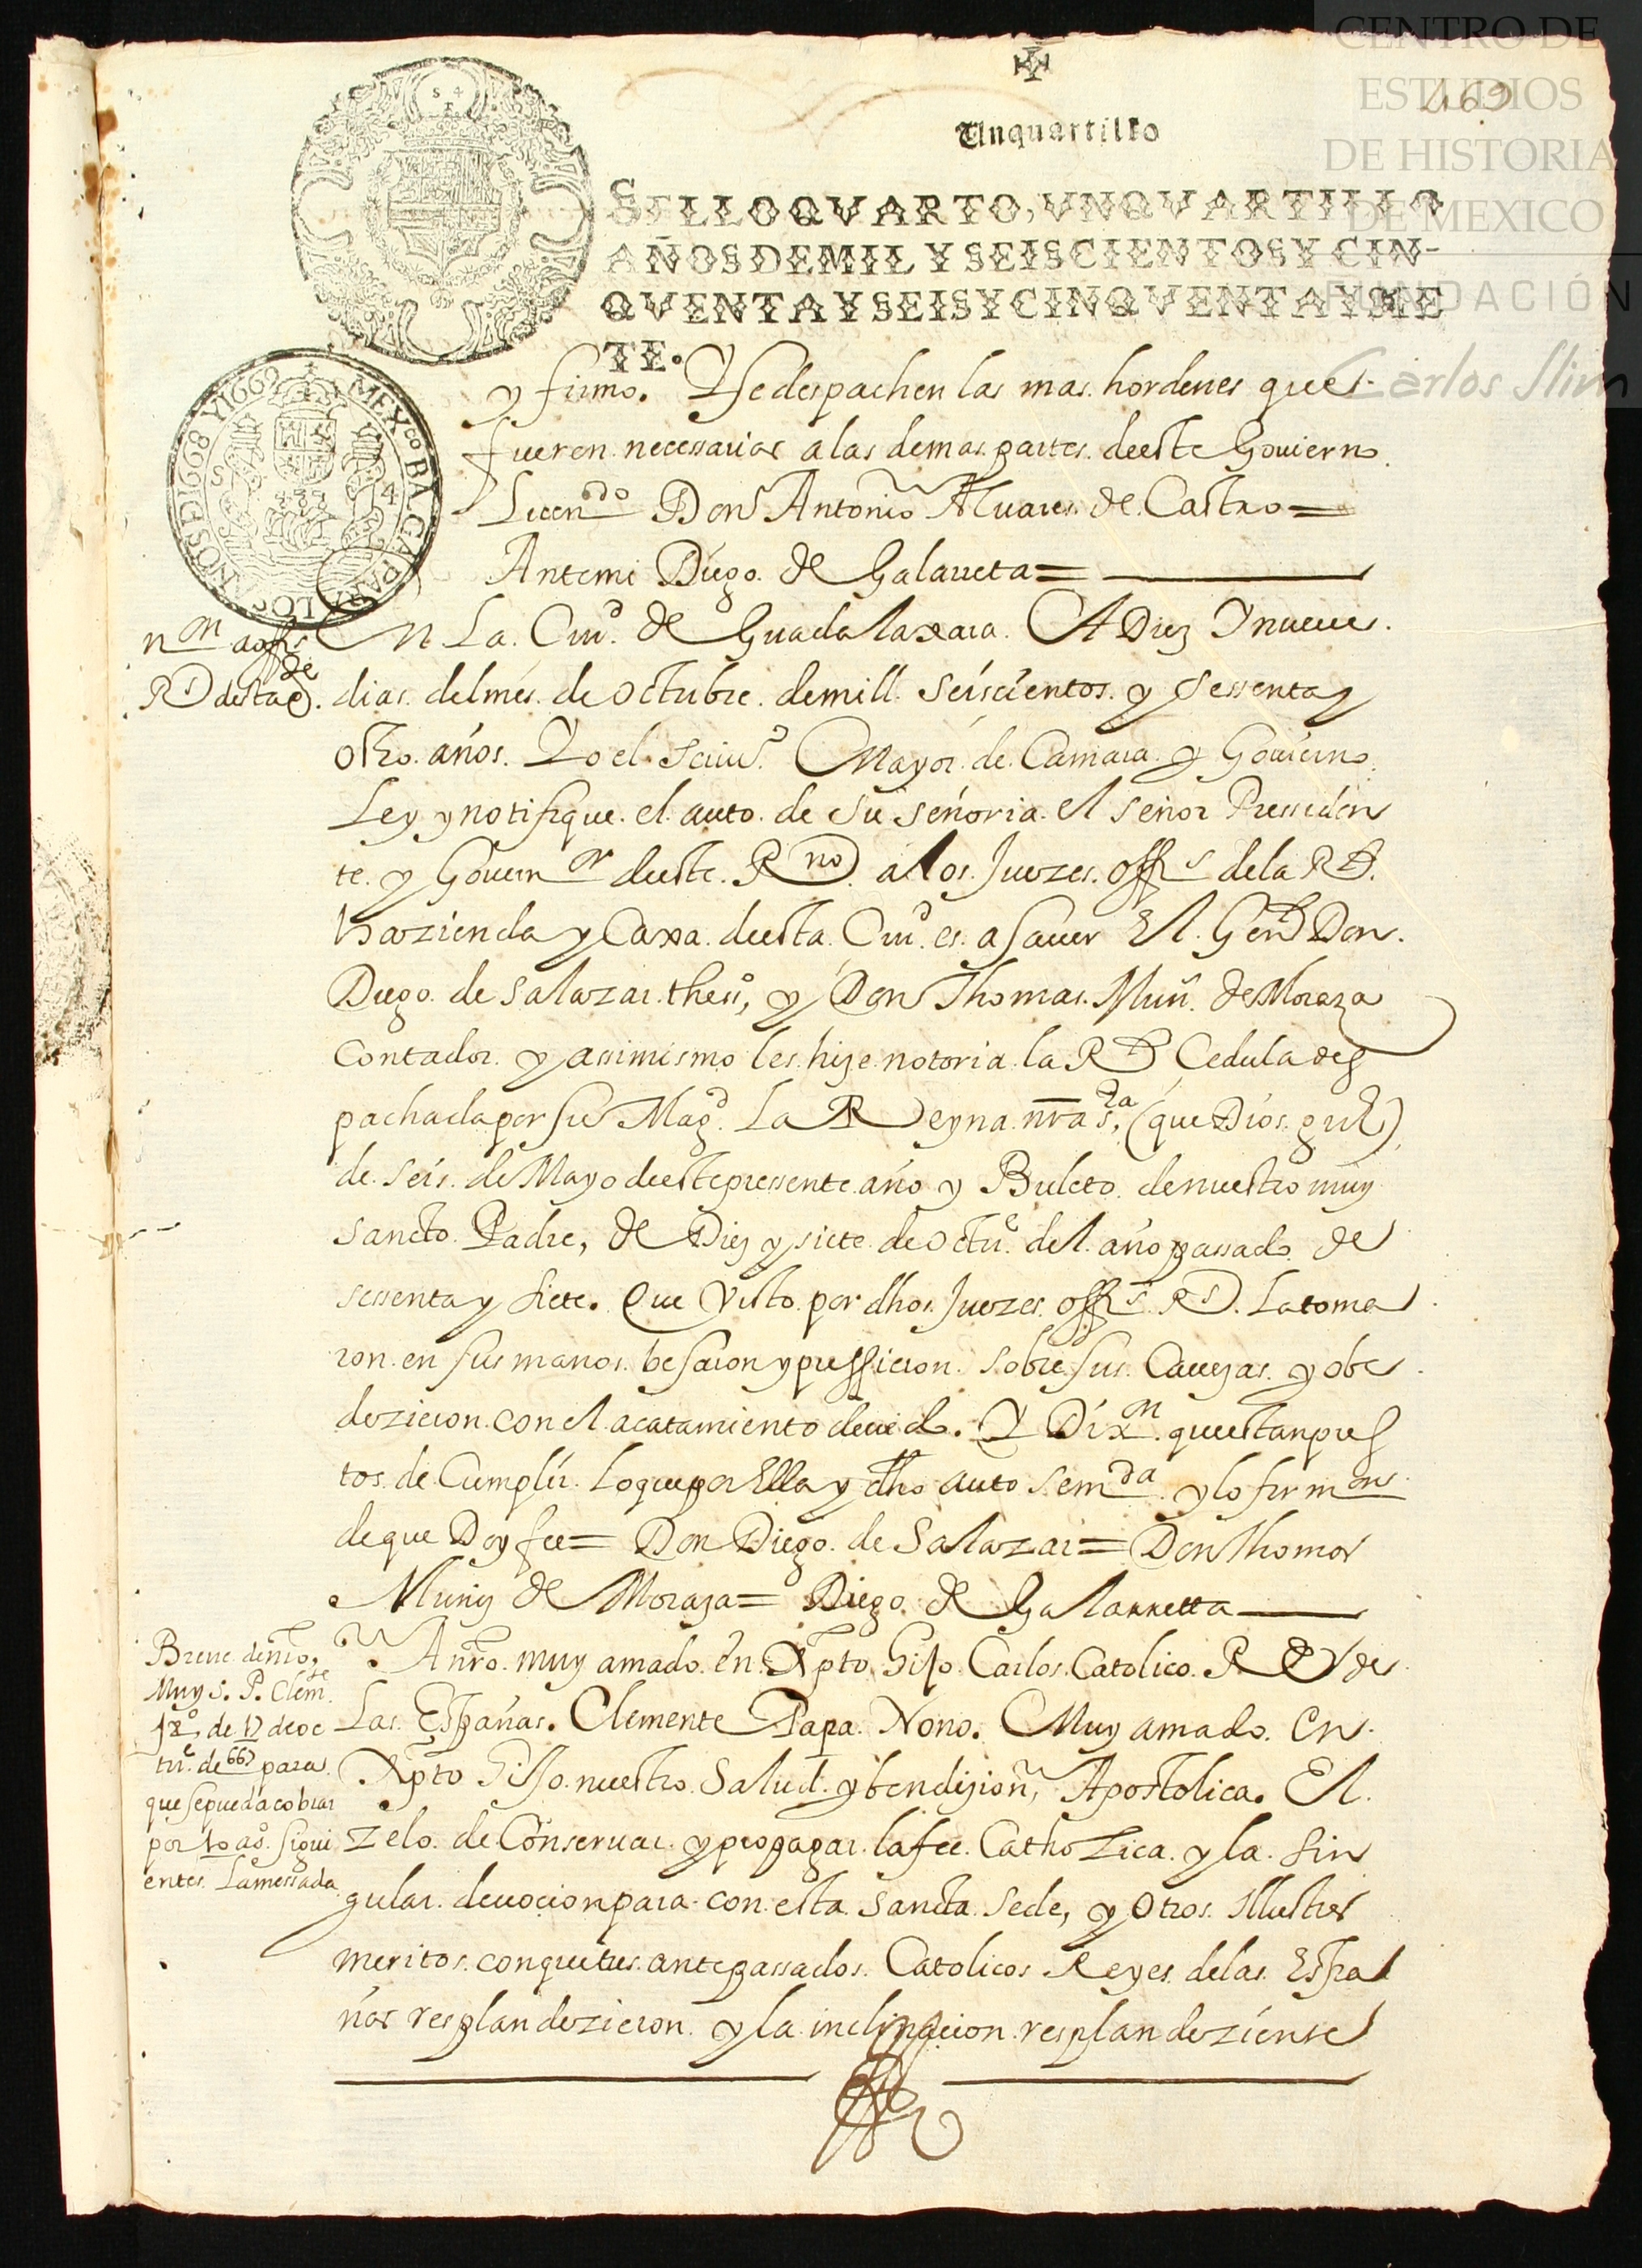 CENTRO DE
ESTUDIOS
DE HISTORIA
DE MEXICO
FUNDACIÓN
Carlos Slim
169
Unquartillo
SELLO QVARTO, VN QVARTILLO
AÑOS DE MIL Y SEISCIENTOS Y CIN-
QVENTA Y SEIS Y CINQVENTA Y SIE
TE.
S 4
MEXco BA. CA. PARA LOS ANOS DE 1668 Y 1669
S 4
y firmo. Y se despachen las mas hordenes que
fueren necessarias a las demas partes deeste Gouierno
Licendo Don Antonio Aluares de Castro =
Antemi Diego de Galarreta =
En La Ciud de Guadalaxara A Diez Y nueue
dias del mes de Octubre de mill seiscientos y sessenta y
otho años. Yo el scriuo Mayor de Camara y Gouierno
Ley y notifique el auto de su señoria el señor Pressiden
te y Gouernor deeste Rno a los Juezes offs de la Rl
hazienda y Caxa deesta Ciud es a sauer El Genl Don
Diego de Salazar theso, y Don Thomas Muñ de Moraza
Contador y assimismo les hize notoria la Rl Cedula des
pachada por su Magd La Reyna nra sra, (que Dios gue)
de seis de Mayo deeste pressente año y Buleto de nuestro muy
sancto Padre, de Diez y siete de octue del año passado de
sessenta y siete. Que Visto por dhos Juezes offs Rs La toma
ron en sus manos besaron y pussieron sobre sus Cauezas y obe
dezieron con el acatamiento deuido. Y Dixn que estan pres
tos de Cumplir lo que por Ella y dho auto se mda y lo firmon
de que Doy fee = Don Diego de Salazar = Don Thomas
Muniz de Moraza = Diego de Galarretta
A nro muy amado en Xpto Hijo Carlos Catolico Rey de
Las Españas. Clemente Papa Nono. Muy amado en
Xpto Hijo nuestro Salud y bendizion, Apostolica. El
zelo de Conseruar y propagar la fee Catholica y la sin
gular deuocion para con esta Sancta Sede, y otros Illustres
meritos con que tus antepassados Catolicos Reyes de las Espa
ñas resplandezieron y la inclinacion resplandeziente
non a offs
Rs de sta C.
Breue de nro
Muy S. P. Clemte
9o, de 17 de oc
tue de 667 para
que se pueda cobrar
por 10 as sigui
entes La messada